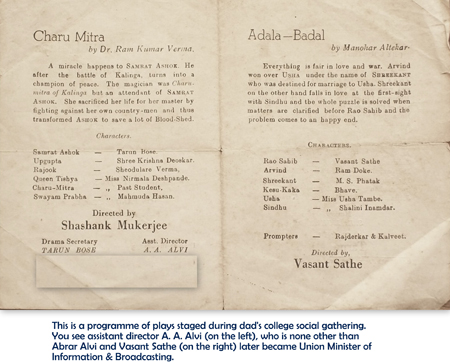 Charu Mitra
by Dr. Ram Kumar Verma.
A miracle happens to SAMRAT ASHOK. He
after the battle of Kalinga, turns into a
champion of peace. The magician was Charu-
mitra of Kalinga but an attendant of SAMRAT
ASHOK. She sacrificed her life for her master by
fighting against her own country-men and thus
transformed ASHOK to save a lot of Blood-Shed.
Characters.
Samrat Ashok — Tarun Bose.
Upgupta — Shree Krishna Deoskar.
Rajook — Sheodulare Verma,
Queen Tishya — Miss Nirmala Deshpande.
Charu-Mitra — ,, Past Student,
Swayam Prabha — ,, Mahmuda Hasan.
Directed by
Shashank Mukerjee
Drama Secretary Asst. Director
TARUN BOSE A. A. ALVI
Adala—Badal
by Manohar Altekar
Everything is fair in love and war. Arvind
won over USHA under the name of SHREEKANT
who was destined for marriage to Usha. Shreekant
on the other hand falls in love at the first-sight
with Sindhu and the whole puzzle is solved when
matters are clarified before Rao Sahib and the
problem comes to an happy end.
CHARACTERS.
Rao Sahib — Vasant Sathe
Arvind — Ram Doke.
Shreekant — M. S. Phatak
Kesu-Kaka — Bhave.
Usha — Miss Usha Tambe.
Sindhu — ,, Shalini Inamdar.
Prompters — Rajderkar & Kalveet.
Directed by,
Vasant Sathe
This is a programme of plays staged during dad's college social gathering.
You see assistant director A. A. Alvi (on the left), who is none other than
Abrar Alvi and Vasant Sathe (on the right) later became Union Minister of
Information & Broadcasting.